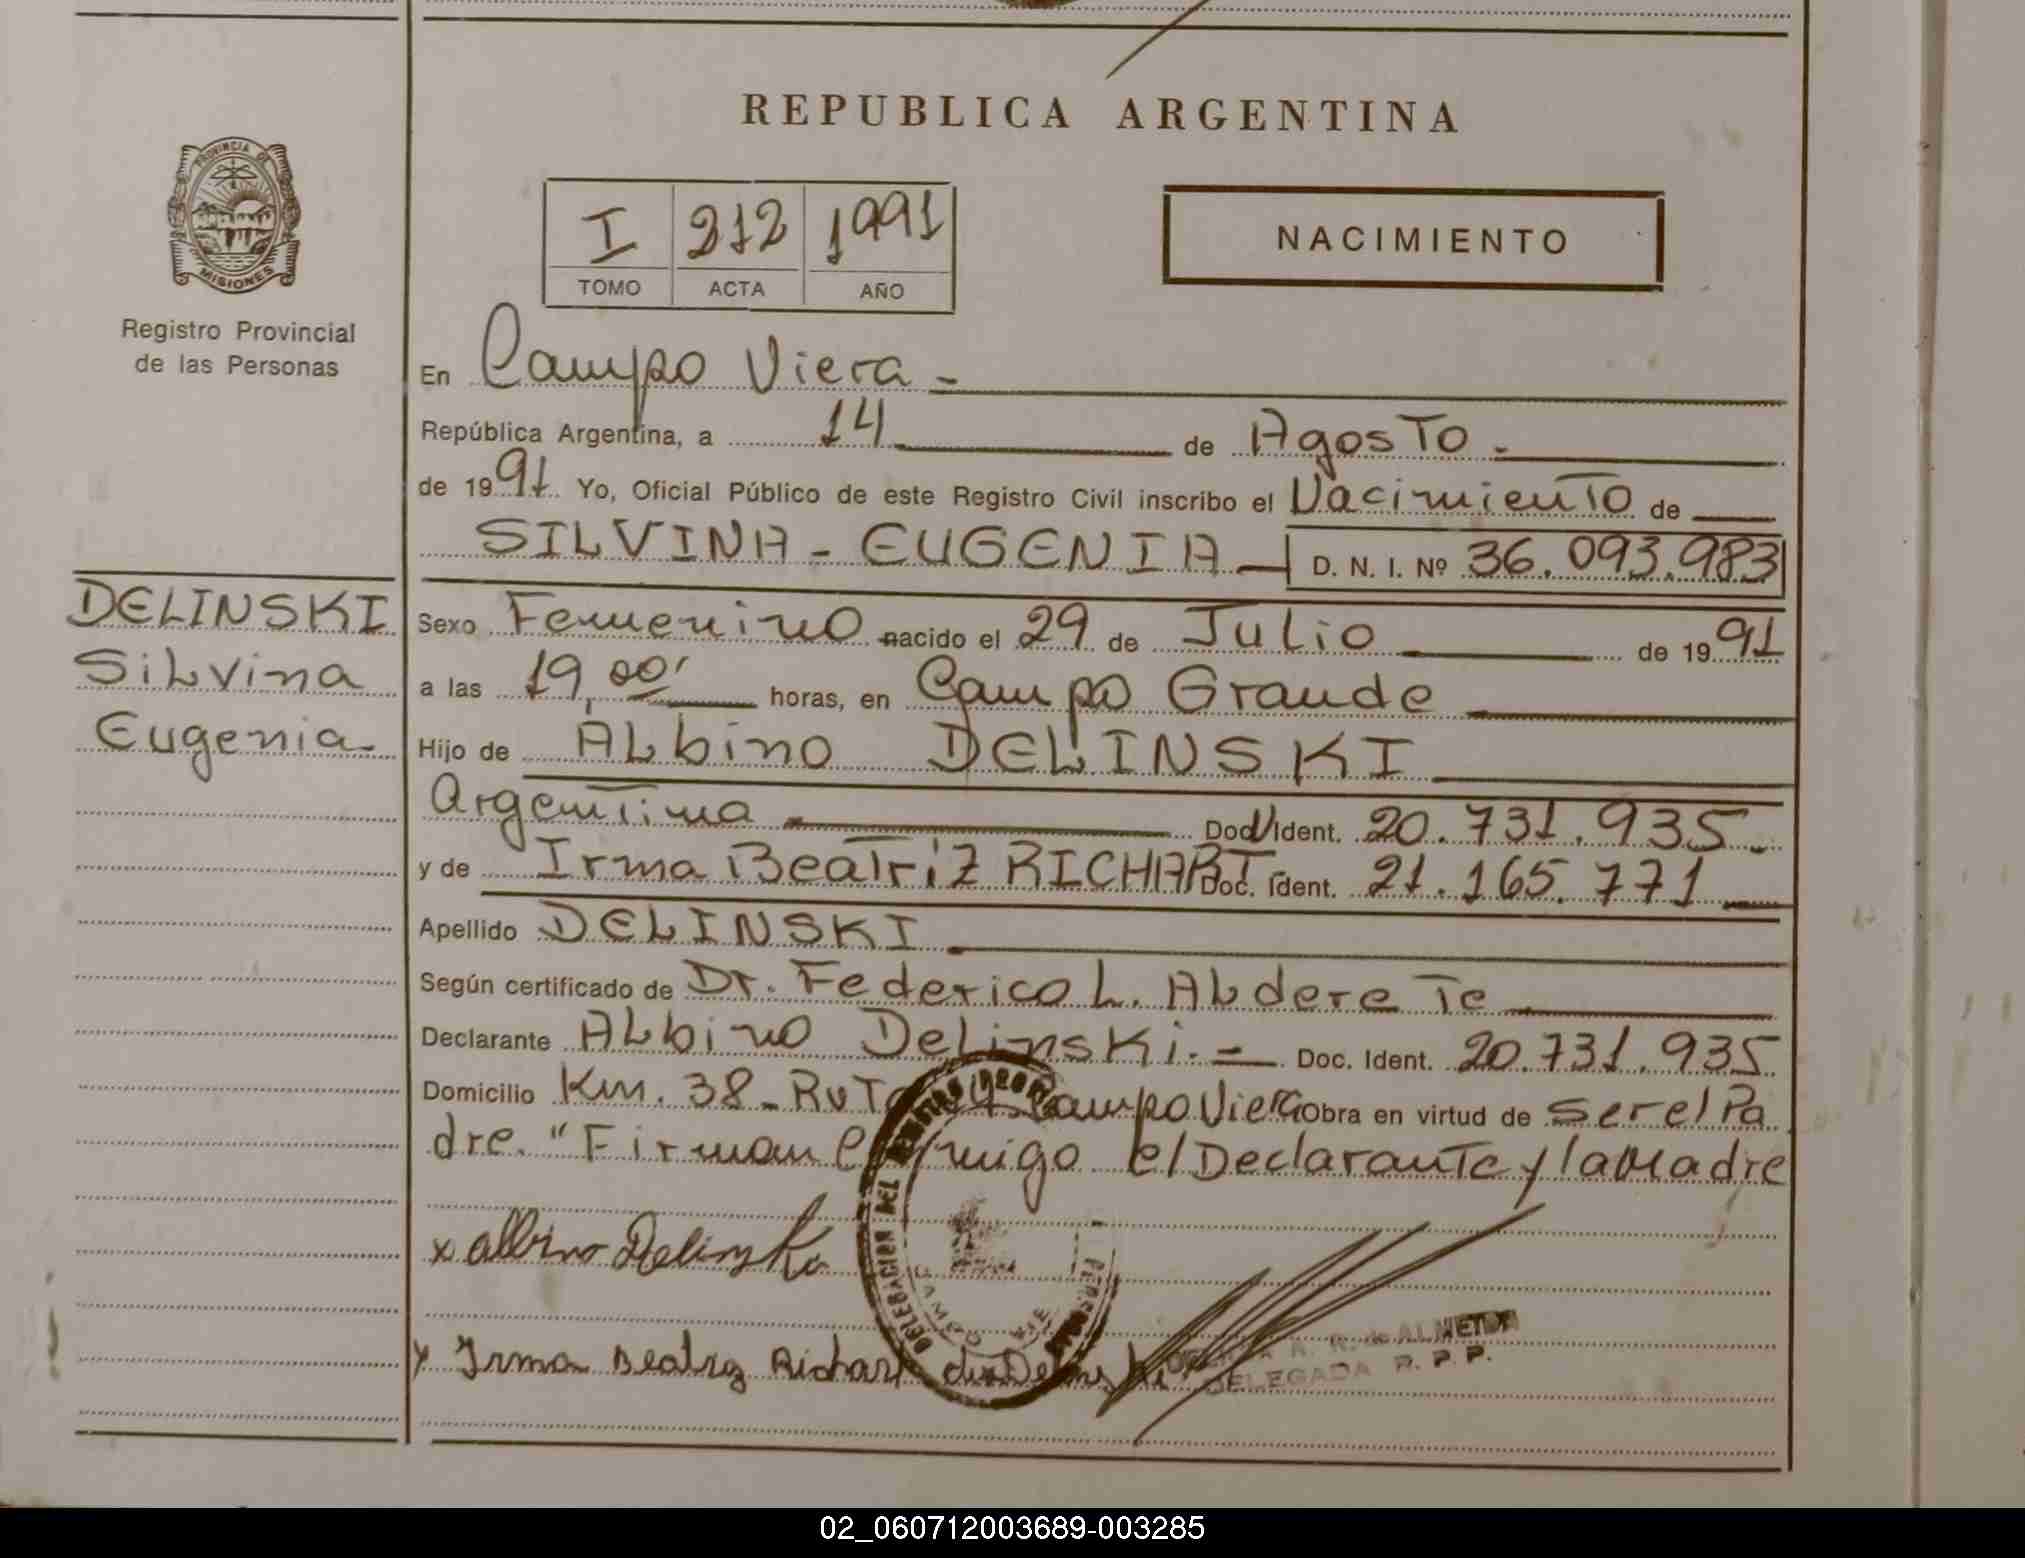 REPUBLICA ARGENTINA
PROVINCIA DE
MISIONES
Registro Provincial
de las Personas
I 212 1991
TOMO ACTA AÑO
NACIMIENTO
En Campo Viera
República Argentina, a 14 de Agosto
de 1991 Yo, Oficial Público de este Registro Civil inscribo el Nacimiento de
SILVINA - EUGENIA D. N. I. Nº 36.093.983
DELINSKI
Silvina
Eugenia
Sexo Femenino nacido el 29 de Julio de 1991
a las 19,00' horas, en Campo Grande
Hijo de Albino DELINSKI
Argentina Doc. Ident. 20.731.935
y de Irma Beatriz RICHART Doc. Ident. 21.165.771
Apellido DELINSKI
Según certificado de Dr. Federico L. Alderete
Declarante Albino Delinski. Doc. Ident. 20.731.935
Domicilio Km. 38 - Ruta 14 Campo Viera obra en virtud de ser el Pa
dre. "Firman Conmigo el Declarante y la Madre
x albino Delinski
DELEGACION DEL REGISTRO PROV. PERSONAS
CAMPO VIE
x Irma Beatriz Richart de Delinski
R. de ALMEIDA
DELEGADA R. P. P.
02_060712003689-003285